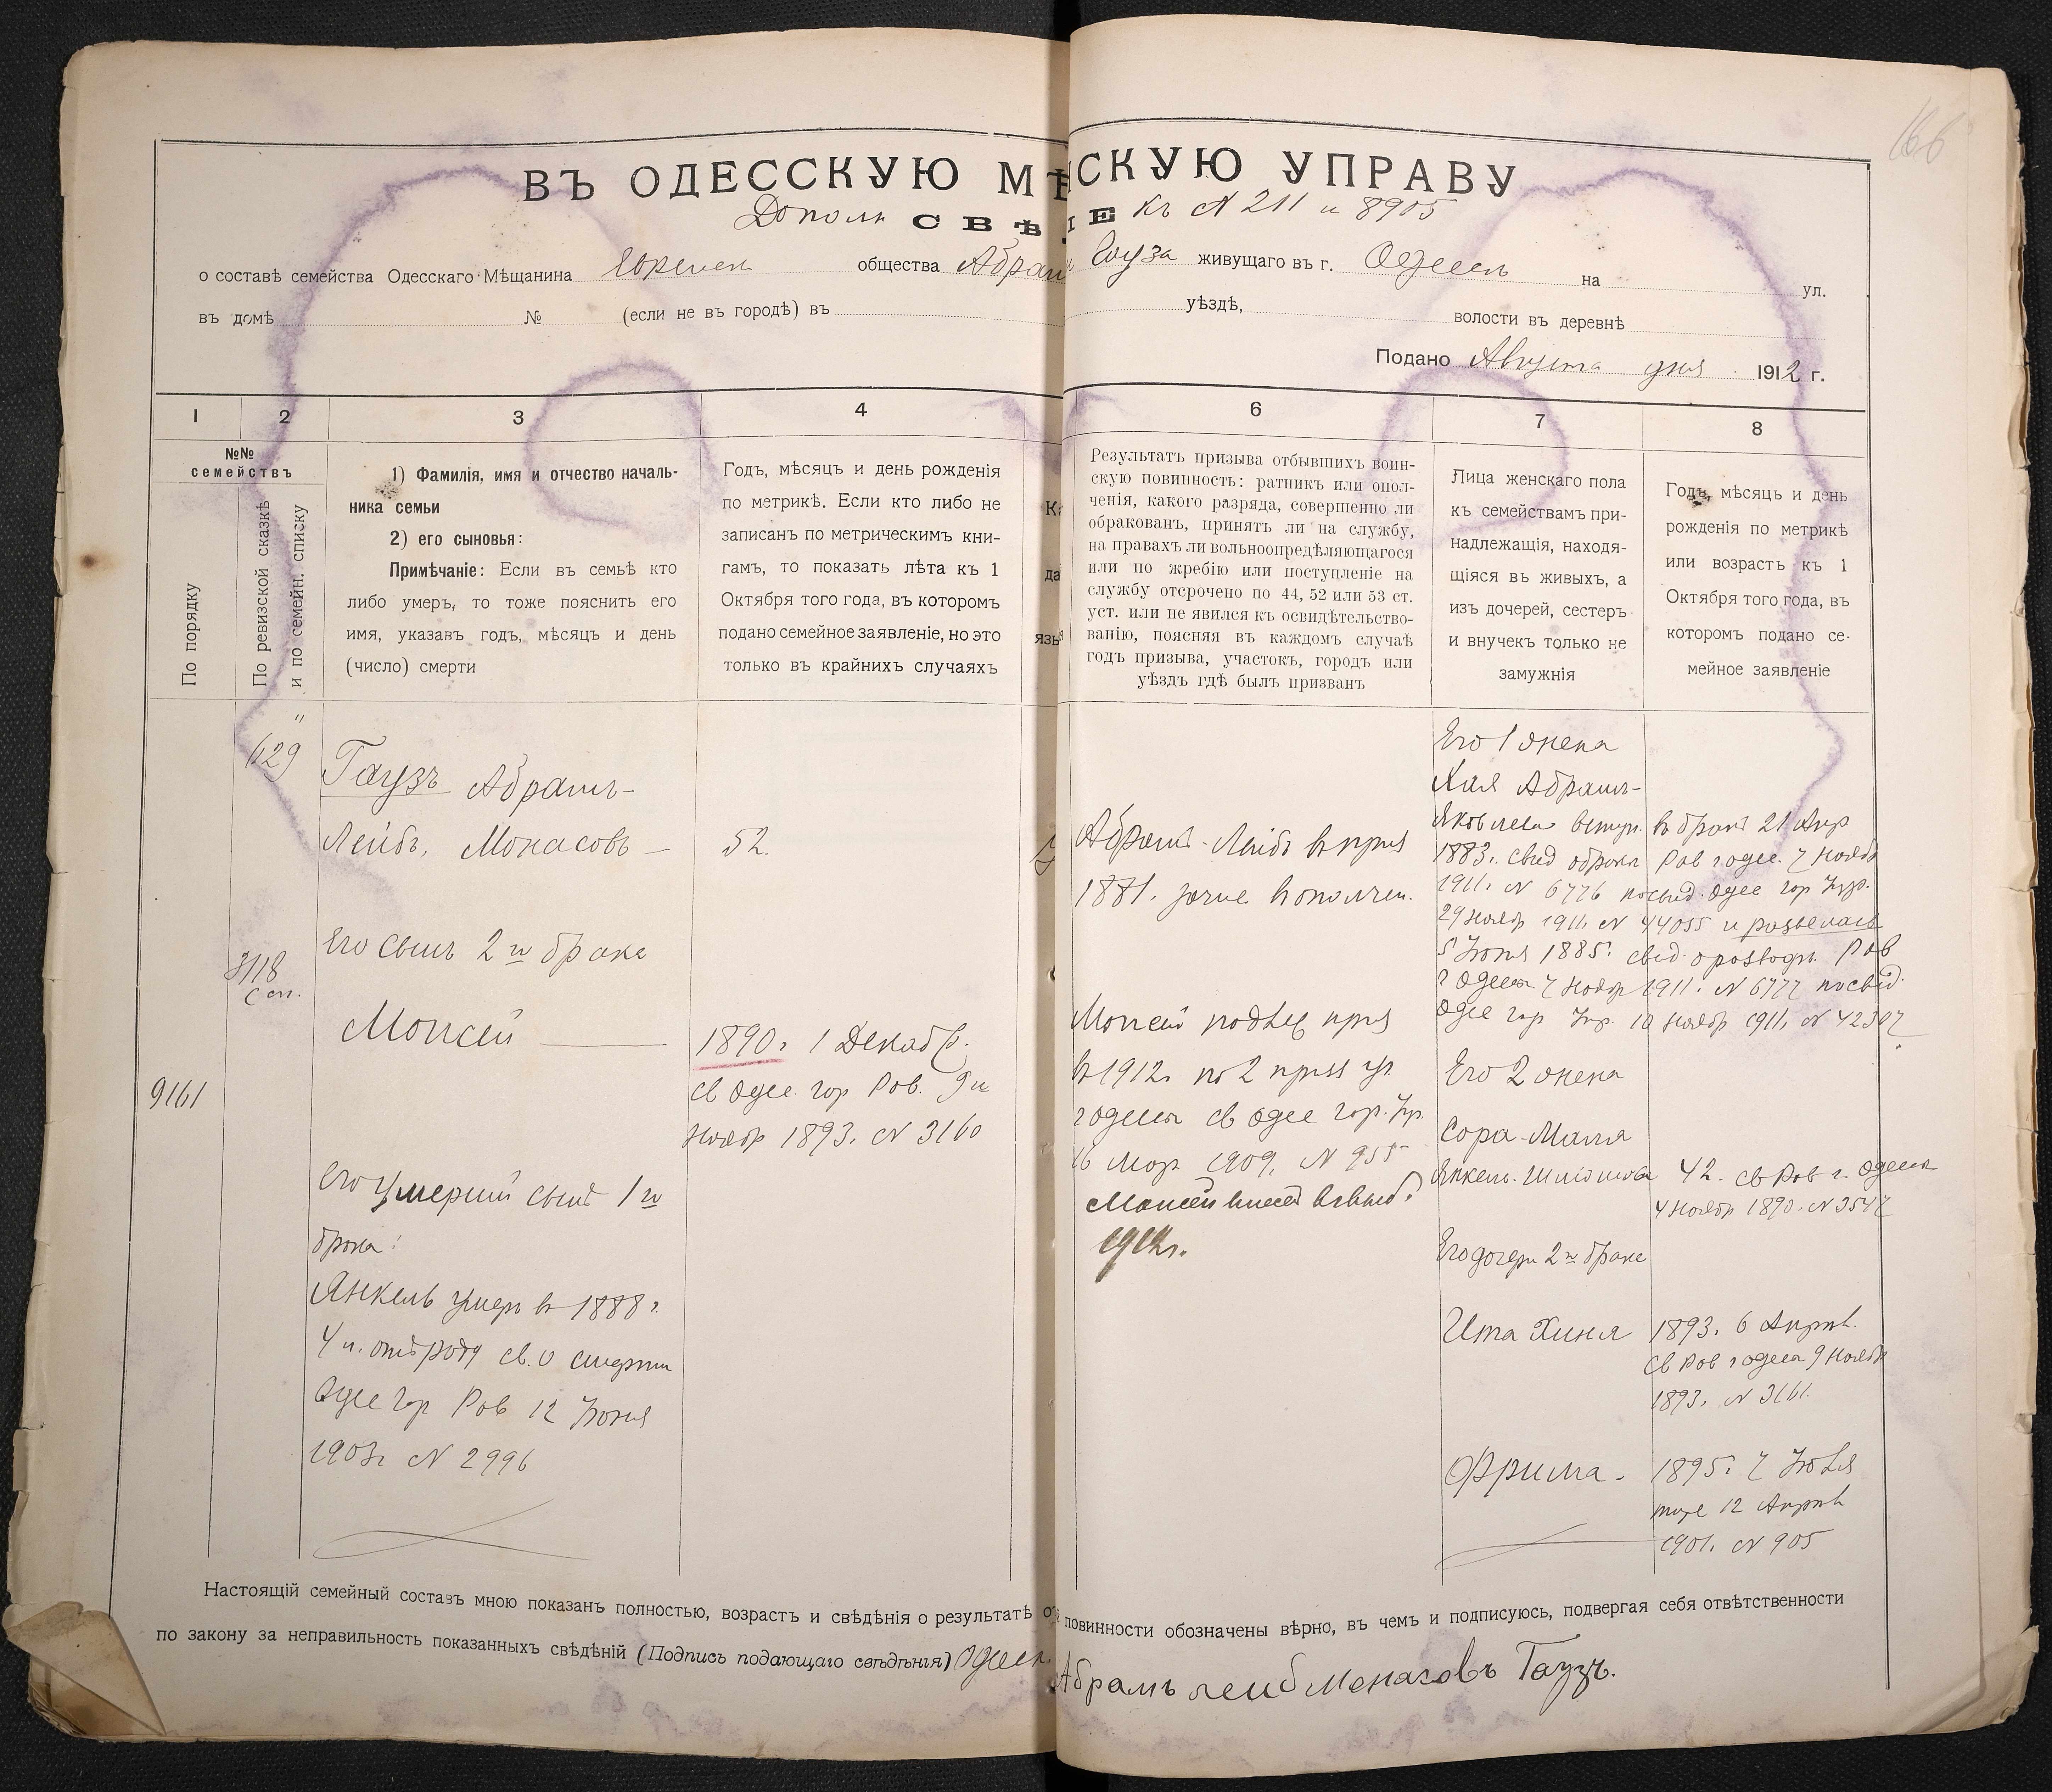 166
ВЪ ОДЕССКУЮ МѢ СКУЮ УПРАВУ
Дополн СВѢ ІЕ къ № 211 и 8905
о составѣ семейства Одесскаго Мѣщанина Евреи общества Абрам Гауза живущаго въ г. Одессѣ на ул.
въ домѣ № (если не въ городѣ) въ уѣздѣ, волости въ деревнѣ
Подано Августа дня 1912 г.
1 2 3 4 6 7 8
№№ семействъ
По порядку
По ревизской сказкѣ
и по семейн. списку
1) Фамилія, имя и отчество началь-
ника семьи
2) его сыновья:
Примѣчаніе: Если въ семьѣ кто
либо умеръ, то тоже пояснить его
имя, указавъ годъ, мѣсяцъ и день
(число) смерти
Годъ, мѣсяцъ и день рожденія
по метрикѣ. Если кто либо не
записанъ по метрическимъ кни-
гамъ, то показать лѣта къ 1
Октября того года, въ которомъ
подано семейное заявленіе, но это
только въ крайнихъ случаяхъ
Результатъ призыва отбывшихъ воин-
скую повинность: ратникъ или опол-
ченія, какого разряда, совершенно ли
обракованъ, принятъ ли на службу,
на правахъ ли вольноопредѣляющагося
или по жребію или поступленіе на
службу отсрочено по 44, 52 или 53 ст.
уст. или не явился къ освидѣтельство-
ванію, поясняя въ каждомъ случаѣ
годъ призыва, участокъ, городъ или
уѣздъ гдѣ былъ призванъ
Лица женскаго пола
къ семействамъ при-
надлежащія, находя-
щіяся въ живыхъ, а
изъ дочерей, сестеръ
и внучекъ только не
замужнія
Годъ, мѣсяцъ и день
рожденія по метрикѣ
или возрастъ къ 1
Октября того года, въ
которомъ подано се-
мейное заявленіе
629
Гаузъ Абрамъ-
Лейбъ, Монасовъ —
3118
Его сынъ 2го брака
Моисей
9161
Его умерший сынъ 1го
брака:
Янкель умеръ въ 1888 г.
4 л. отъ роду св. о смерти
Одес гор Рав 12 Іюня
1903г № 2996
52.
1890г 1 Декабр.
св Одес. гор Рав. 9го
Ноябр 1893. № 3160
Абрамъ-Лейбъ въ призв
1881. зачис въ ополчен.
Моисей подлеж призв
въ 1912г по 2 призв уч.
г Одессы св Одес гор. Упр.
16 Мар 1909. № 955
Моисей внесен
1912г.
Его 1 жена
Хая Абрамъ-
Яковлева вступ. въ бракъ 21 Апр
1883г. свид о бракѣ Рав г Одес. 7 Ноябр
1911г № 6776 Одес гор Упр.
29 Ноябр 1911г № 44055 и развелась
5 Іюня 1885г. свид о развод. Рав
г Одессы 7 Ноябр 1911г. № 6777
Одес гор Упр 10 Ноябр 1911г № 42307
Его 2 жена
Сора-Маля
42. св Рав г. Одессы
4 Ноябр 1890г. № 3547
Его дочери 2го брака
Ита Хиня 1893. 6 Апрѣл.
св Рав г Одессы 9 Ноябр
1893. № 3161.
Фрима. 1895. 7 Іюля
тоже 12 Апрѣл
1901. № 905
Настоящій семейный составъ мною показанъ полностью, возрастъ и свѣдѣнія о результатѣ от повинности обозначены вѣрно, въ чемъ и подписуюсь, подвергая себя отвѣтственности
по закону за неправильность показанныхъ свѣдѣній (Подпись подающаго свѣдѣнія) Одесс. Абрамъ леиб Менасовъ Гаузъ.